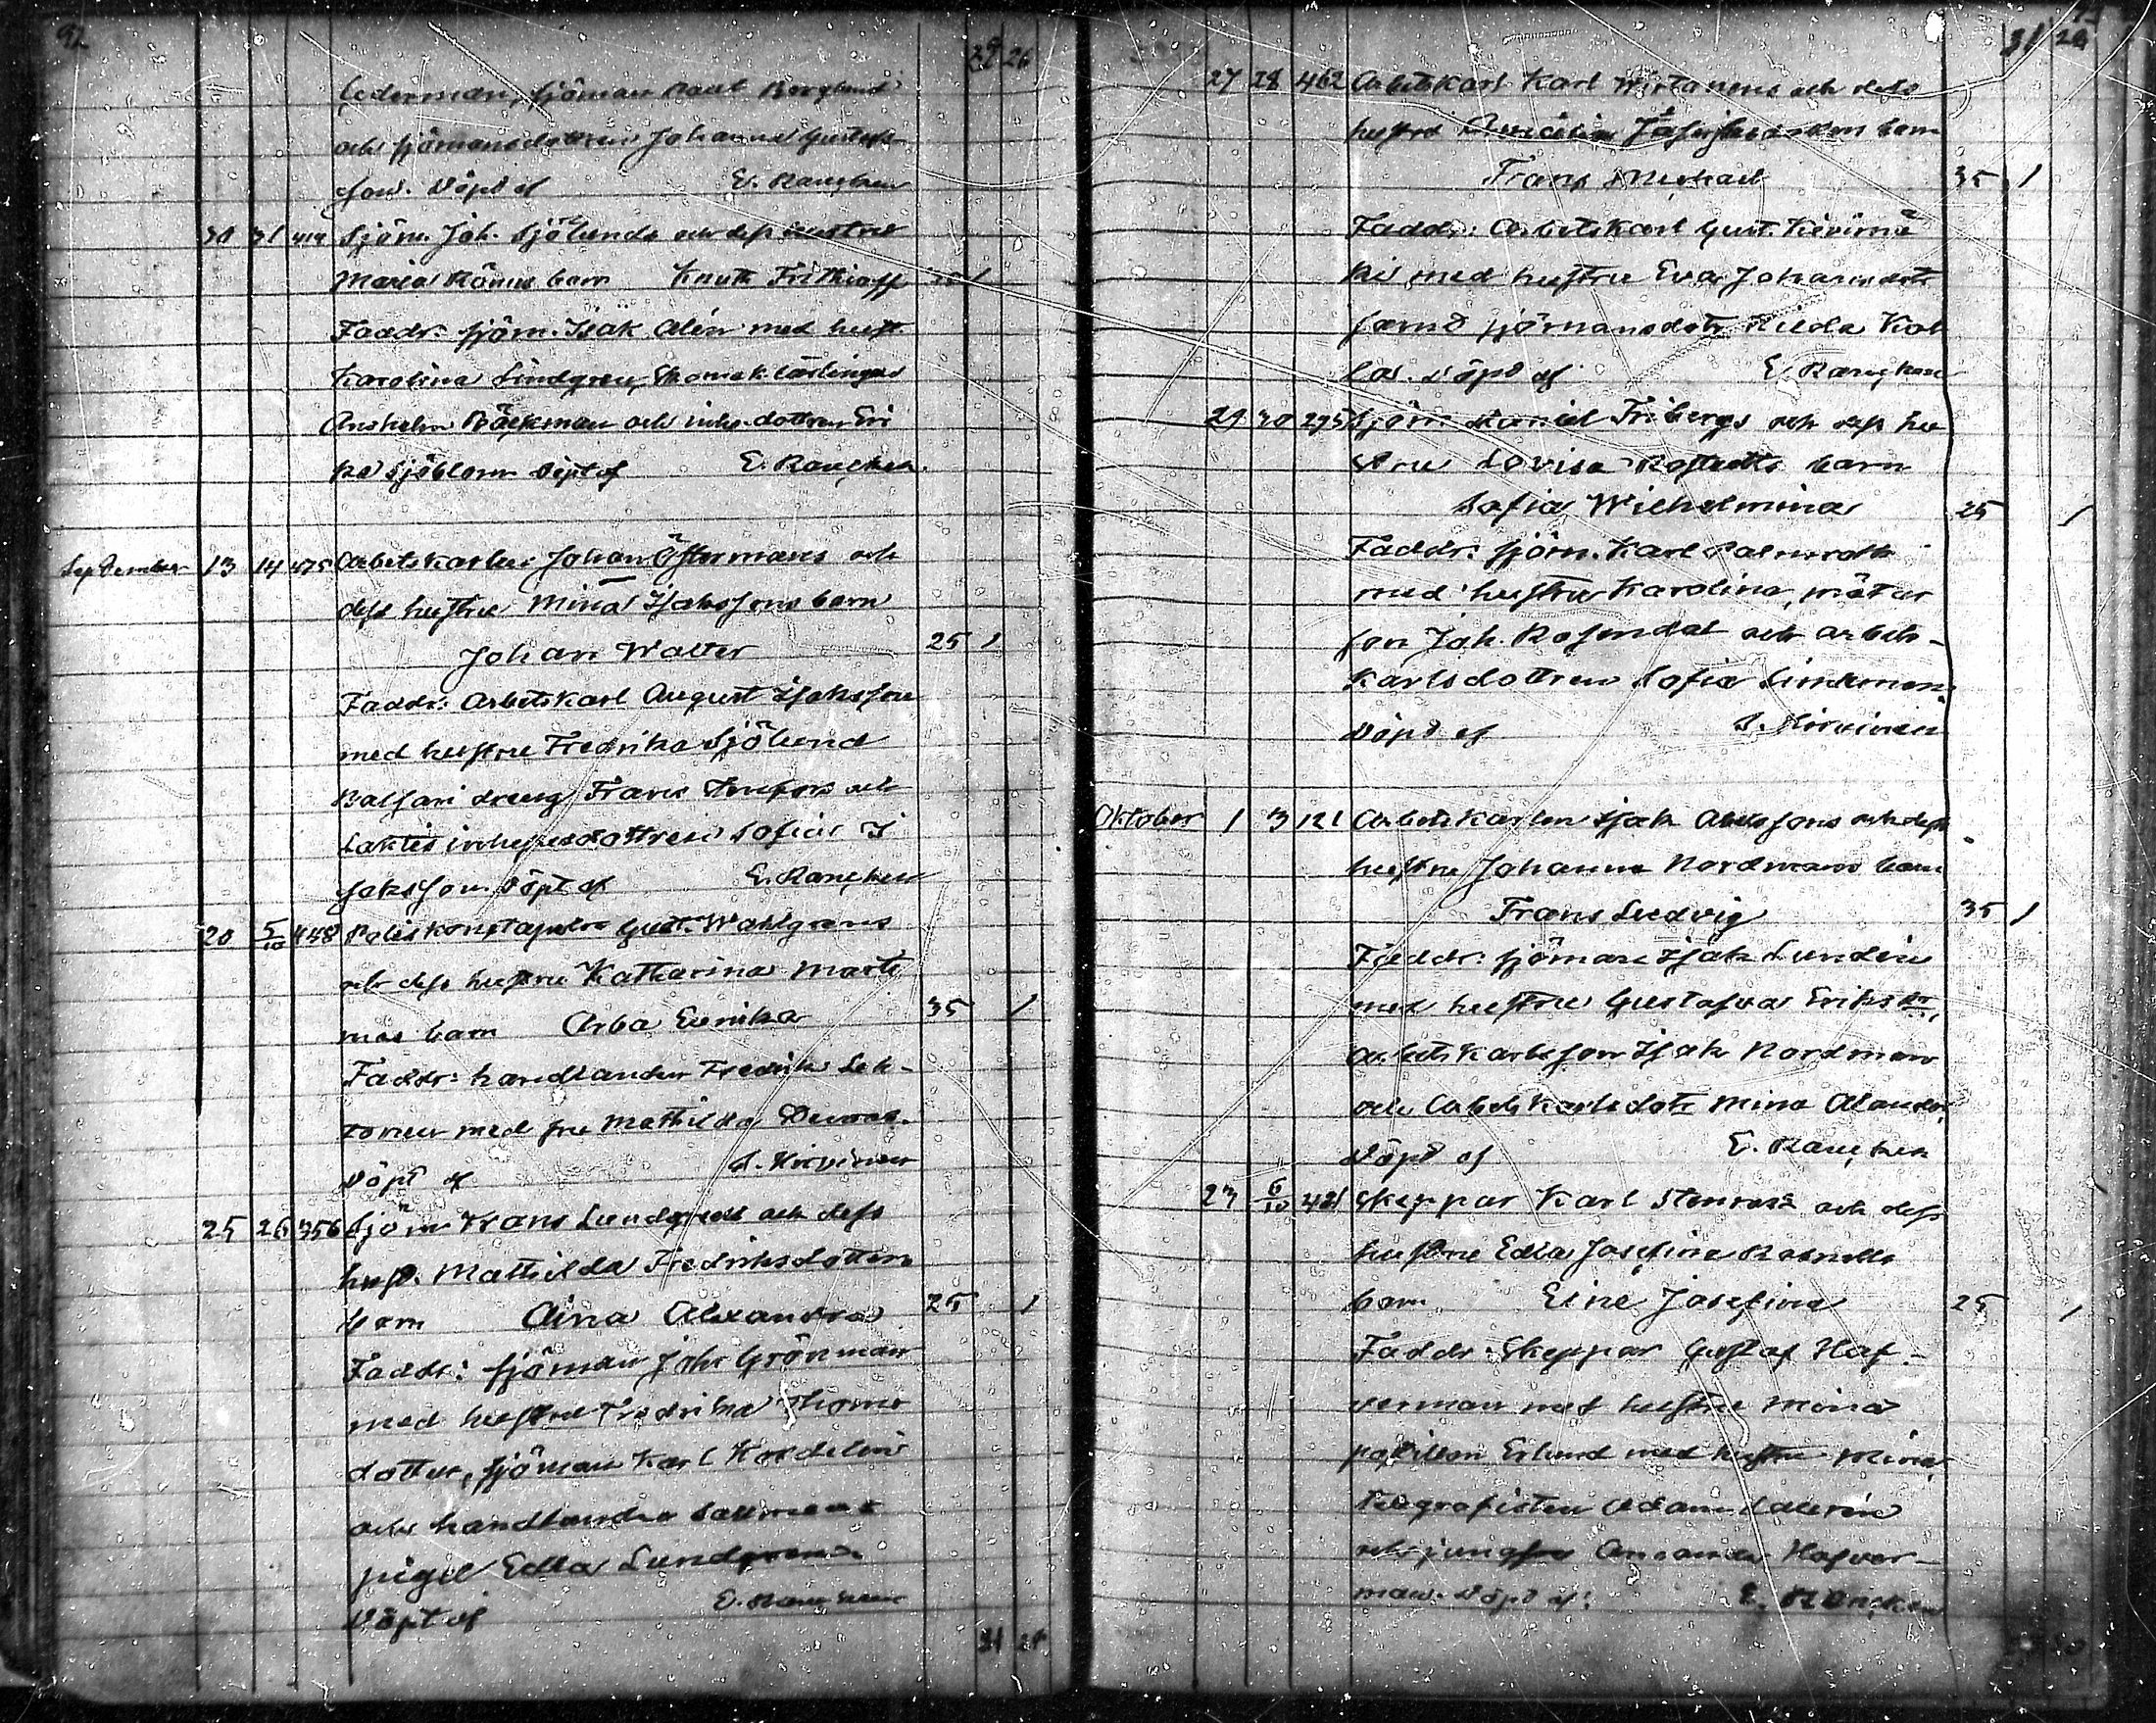 92
29 26
sjöman Berglund
och sjömansdottren Johanna Gustafs-
son. Döpt af E. Rancken
30 31 414 Sjöm. Joh. Sjölunds och dess hustru
Maria barn Knut Frithioff 1
Faddr. sjöm. Isak Alén med hust.
Karolina Lindgren, Skomak. lärlingen
Anshelm Bäckman och inhs. dottren Eri
ka Sjöblom Döpt af E. Rancken.
September 13 14 475 Arbetskarlen Johan Östermans och
dess hustru Mina Isakssons barn
Johan Walter 25 1
Faddr: Arbetskarl August Isaksson
med hustru Fredrika Sjölund
dreng Frans och
inhysesdottren Sofia I
saksson. Döpt af E. Rancken
20 5/10 448 Poliskonstapeln Gust. Wahlgrens
och dess hustru Katharina Marti
nas barn Arba Eerika 35 1
Faddr: handlanden Fredrik Leh-
tonen med fru Mathilda
Döpt af
25 26 356 Sjöm Frans Lundqvists och dess
hust. Mathilda Fredriksdotters
barn Aina Alexandra 25 1
Faddr: sjöman Joh. Grönman
med hustru Fredrika Thoms
dotter, sjöman Karl Kordelin
och handlanden
piga Edla Lundgren
Döpt af E. Rancken
31 28
31 28
27 28 462 Arbetskarl Karl Wirtanens och dess
hustru barn
Frans Michael 35 1
Faddr: Arbetskarl Gust. Kivimä
ki med hustru Eva Johansdotr
samt sjömansdotr Hilda Kal
las. Döpt af E. Rancken
29 30 295 Sjöm Daniel Fribergs och dess hu
stru Lovisa barn
Sofia Wilhelmina 25 1
Faddr: sjöm. Karl Palmroth
med hustru Karolina,
son Joh. Rosendal och arbets-
karlsdottren Sofia Lindeman.
Döpt af
Oktober 1 3 121 Arbetskarlen Isak Abelssons och dess
hustru Johanna Nordmans barn
Frans Ludvig 35 1
Faddr. sjöman Isak Lundin
med hustru Gustafva Eriksdr,
arbetskarlsson Isak Nordman
och arbetskarlsdotr Mina Alander
Döpt af E. Rancken
23 6/10 421 Skeppar Karl Stenroos och dess
hustru Edla Josefina
barn Eine Josefina 25 1
Faddr: Skeppar Gustaf Haf-
verman med hustru Mina
Erlund med hustru Mina,
Telegrafisten Adam
och jungfru Amanda Hafver-
man. Döpt af: E. Rancken